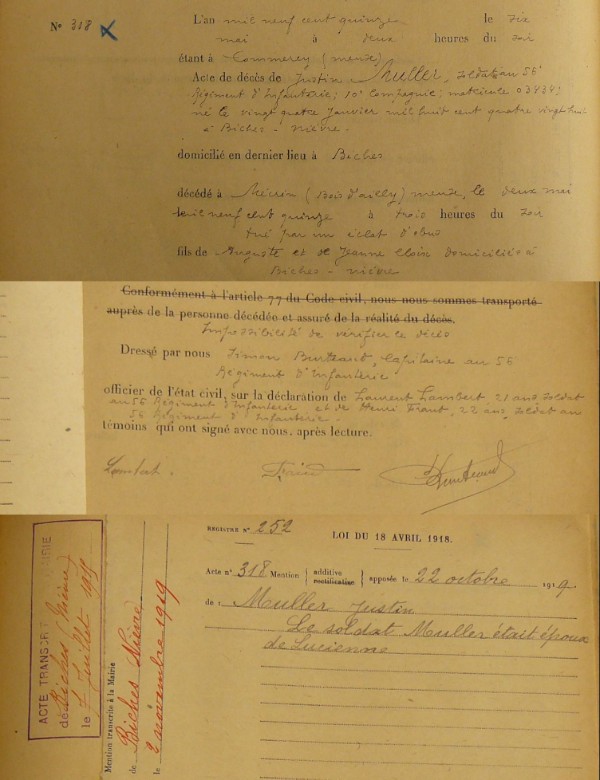 Nº 318
L'an mil neuf cent quinze le dix
mai à deux heures du soir
étant à Commercy (meuse)
Acte de décès de Justin Muller, soldat au 56e
Régiment d'Infanterie; 10e Compagnie; matricule 03484;
né le vingt quatre Janvier mil huit cent quatre vingt huit
à Biches - nièvre.
domicilié en dernier lieu à Biches
décédé à Mécrin (Bois d'ailly) meuse, le deux mai
mil neuf cent quinze à trois heures du soir
tué par un éclat d'obus
fils de Auguste et de Jeanne Cloix domiciliés à
Biches - nièvre
Conformément à l'article 77 du Code civil, nous nous sommes transporté
auprès de la personne décédée et assuré de la réalité du décès.
Impossibilité de vérifier le décès
Dressé par nous Simon Capitaine au 56
Régiment d'Infanterie
officier de l'état civil, sur la déclaration de Laurent Lambert 21 ans, soldat
au 56 Régiment d'Infanterie et de Henri 22 ans, soldat au
56 Régiment d'Infanterie.
témoins qui ont signé avec nous, après lecture.
Lambert.
ACTE TRANSCRIT MAIRIE
de Biches (Nièvre)
le 7 Juillet 1919
Mention transcrite à la Mairie
de Biches Nièvre
le 2 novembre 1919
REGISTRE Nº 252
LOI DU 18 AVRIL 1918.
Acte nº 318 Mention additive rectificative apposée le 22 octobre 1919
de : Muller Justin
Le soldat Muller était époux
de Lucienne